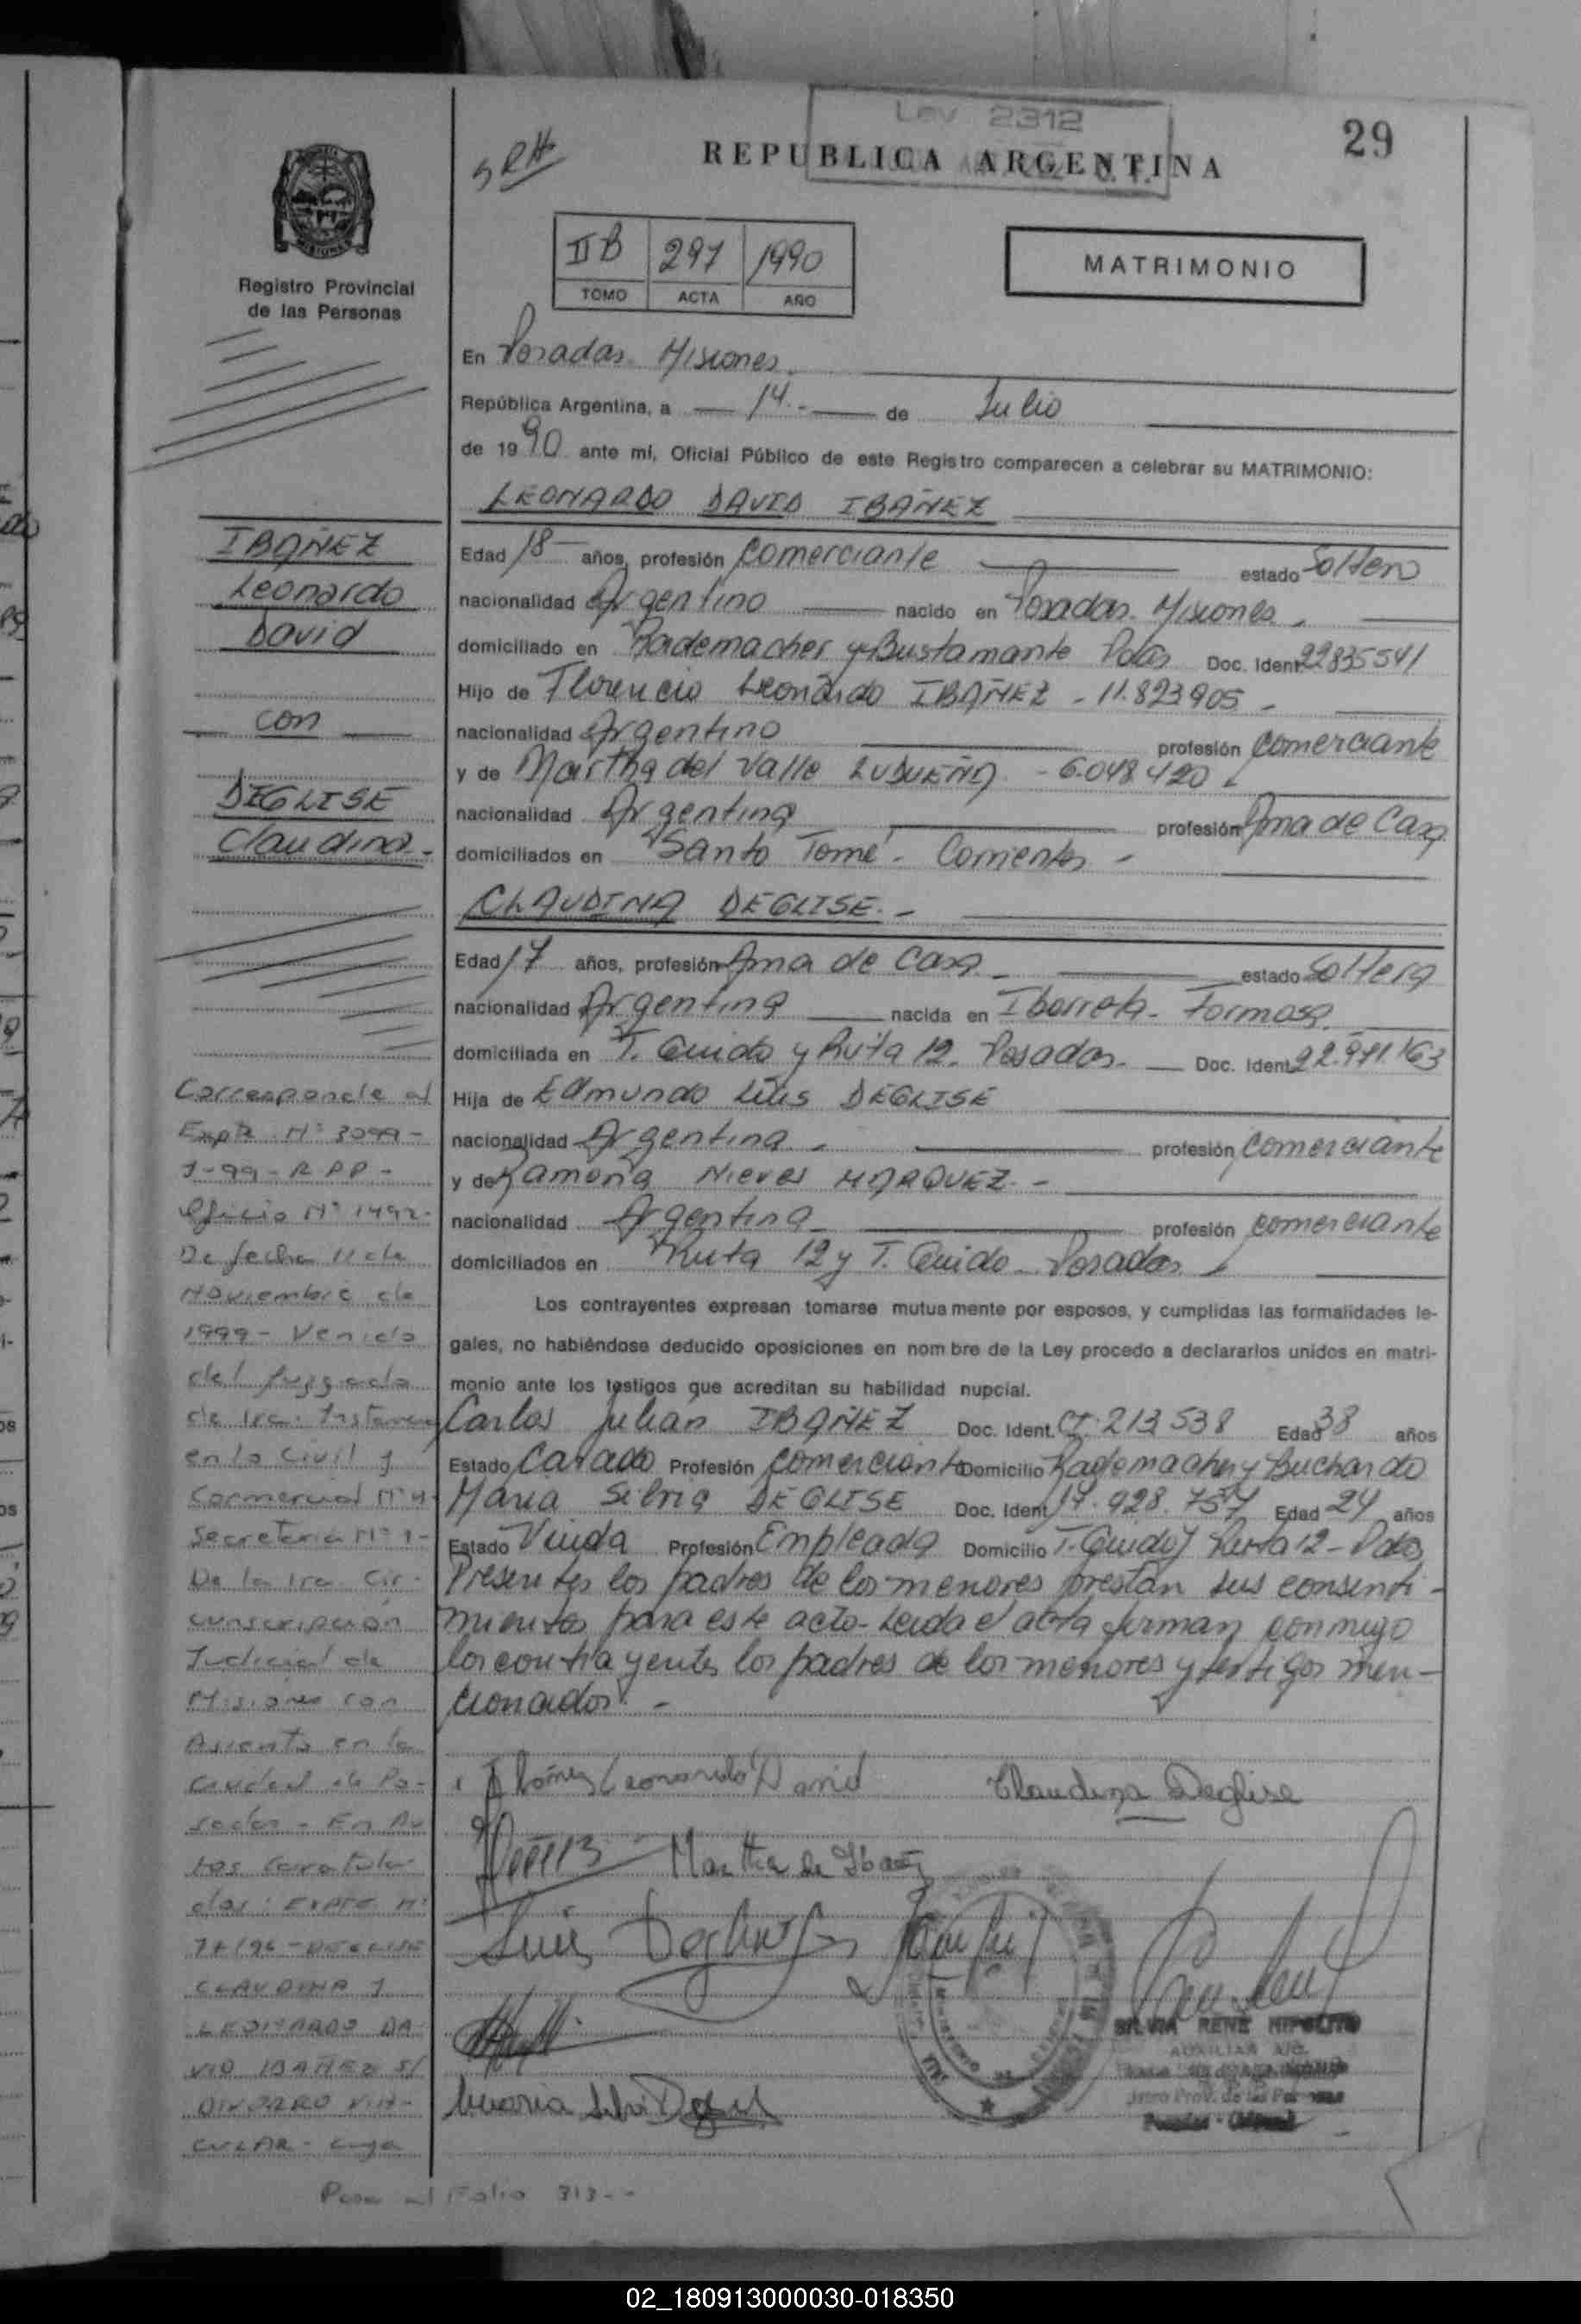 Ley 2312
29
SRH
REPUBLICA ARGENTINA
IIB 297 1990
TOMO ACTA AÑO
MATRIMONIO
Registro Provincial
de las Personas
En Posadas Misiones.
República Argentina, a 14.- de Julio
de 1990 ante mí, Oficial Público de este Registro comparecen a celebrar su MATRIMONIO:
LEONARDO DAVID IBAÑEZ
Edad 18 años, profesión Comerciante estado Soltero
nacionalidad Argentino nacido en Posadas. Misiones.
domiciliado en Rademacher y Bustamante Pdas Doc. Ident. 22835541
Hijo de Florencio Leonardo IBAÑEZ - 11.823905 -
nacionalidad Argentino profesión Comerciante
y de Martha del Valle LUDUEÑA - 6.048.420
nacionalidad Argentina profesión Ama de Casa
domiciliados en Santo Tomé - Corrientes -
CLAUDINA DEGLISE. -
Edad 17 años, profesión Ama de Casa - estado Soltera
nacionalidad Argentina nacida en Ibarreta - Formosa.
domiciliada en T. Guido y Ruta 12. Posadas. Doc. Ident. 22.971.163
Hija de Edmundo Luis DEGLISE
nacionalidad Argentina. profesión Comerciante
y de Ramona Nieves MARQUEZ. -
nacionalidad Argentina profesión Comerciante
domiciliados en Ruta 12 y T. Guido - Posadas
Los contrayentes expresan tomarse mutuamente por esposos, y cumplidas las formalidades le-
gales, no habiéndose deducido oposiciones en nombre de la Ley procedo a declararlos unidos en matri-
monio ante los testigos que acreditan su habilidad nupcial.
Carlos Julián IBAÑEZ Doc. Ident. CI. 213538 Edad 38 años
Estado Casado Profesión Comerciante Domicilio Rademacher y Buchardo
Maria Silvia DEGLISE Doc. Ident. 17.928.757 Edad 24 años
Estado Viuda Profesión Empleada Domicilio T. Guido y Ruta 12 - Pdas
Presentes los padres de los menores prestan sus consenti-
mientos para este acto - Leida el acta firman conmigo
los contrayentes los padres de los menores y testigos men-
cionados. -
IBAÑEZ
Leonardo
David
con
DEGLISE
Claudina -
Corresponde al
Expte. Nº 3099-
I-99-RPP-
Oficio Nº 1492-
De fecha 11 de
Noviembre de
1999 - Venido
del Juzgado
de 1ra. Instancia
en lo Civil y
Comercial Nº 4-
Secretaria Nº 1-
De la 1ra Cir-
cunscripción
Judicial de
Misiones con
Asiento en la
Ciudad de Po-
sadas - En Au
tos Caratula
dos: EXPTE Nº
74/96 - DEGLISE
CLAUDINA Y
LEONARDO DA
VID IBAÑEZ S/
DIVORCIO VIN-
CULAR - Cuya
Pasa al Folio 313--
Ibañez Leonardo David
Claudina Deglise
Martha de Ibañez
Luis Deglise
Maria Silvia Deglise
SILVIA RENE HIPOLITO
AUXILIAR
Prov. de las Personas
Posadas - (Misiones)
02_180913000030-018350